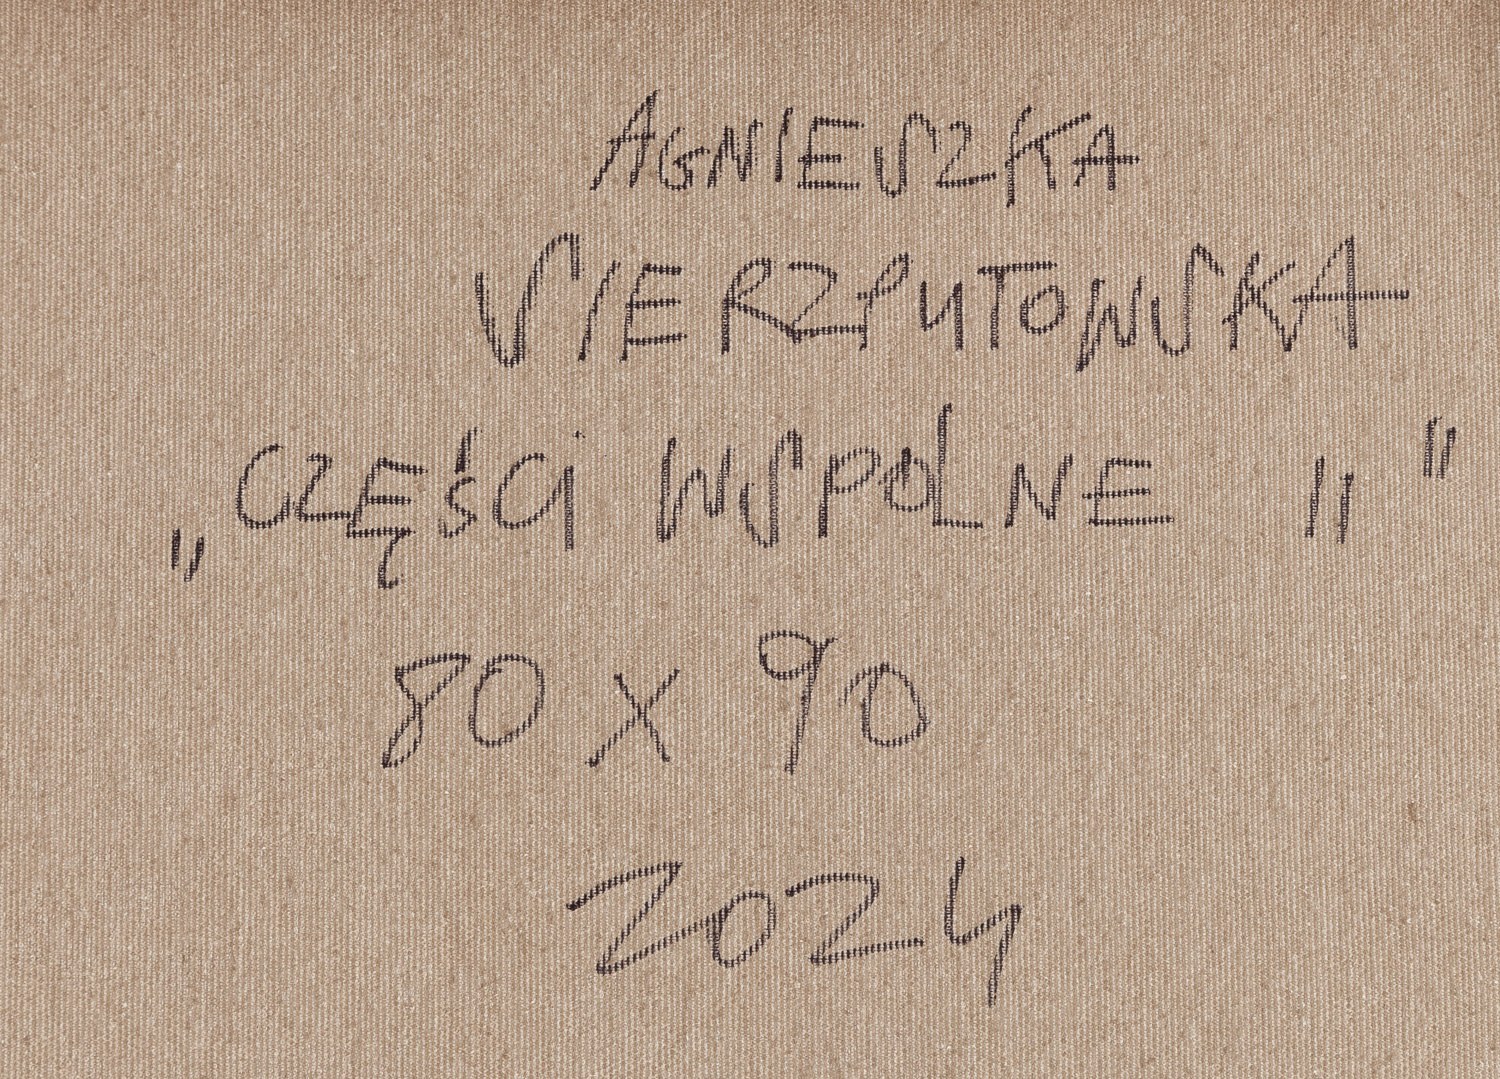 AGNIESZKA
SIERZPUTOWSKA
„CZĘŚCI WSPÓLNE II"
80 X 90
2024